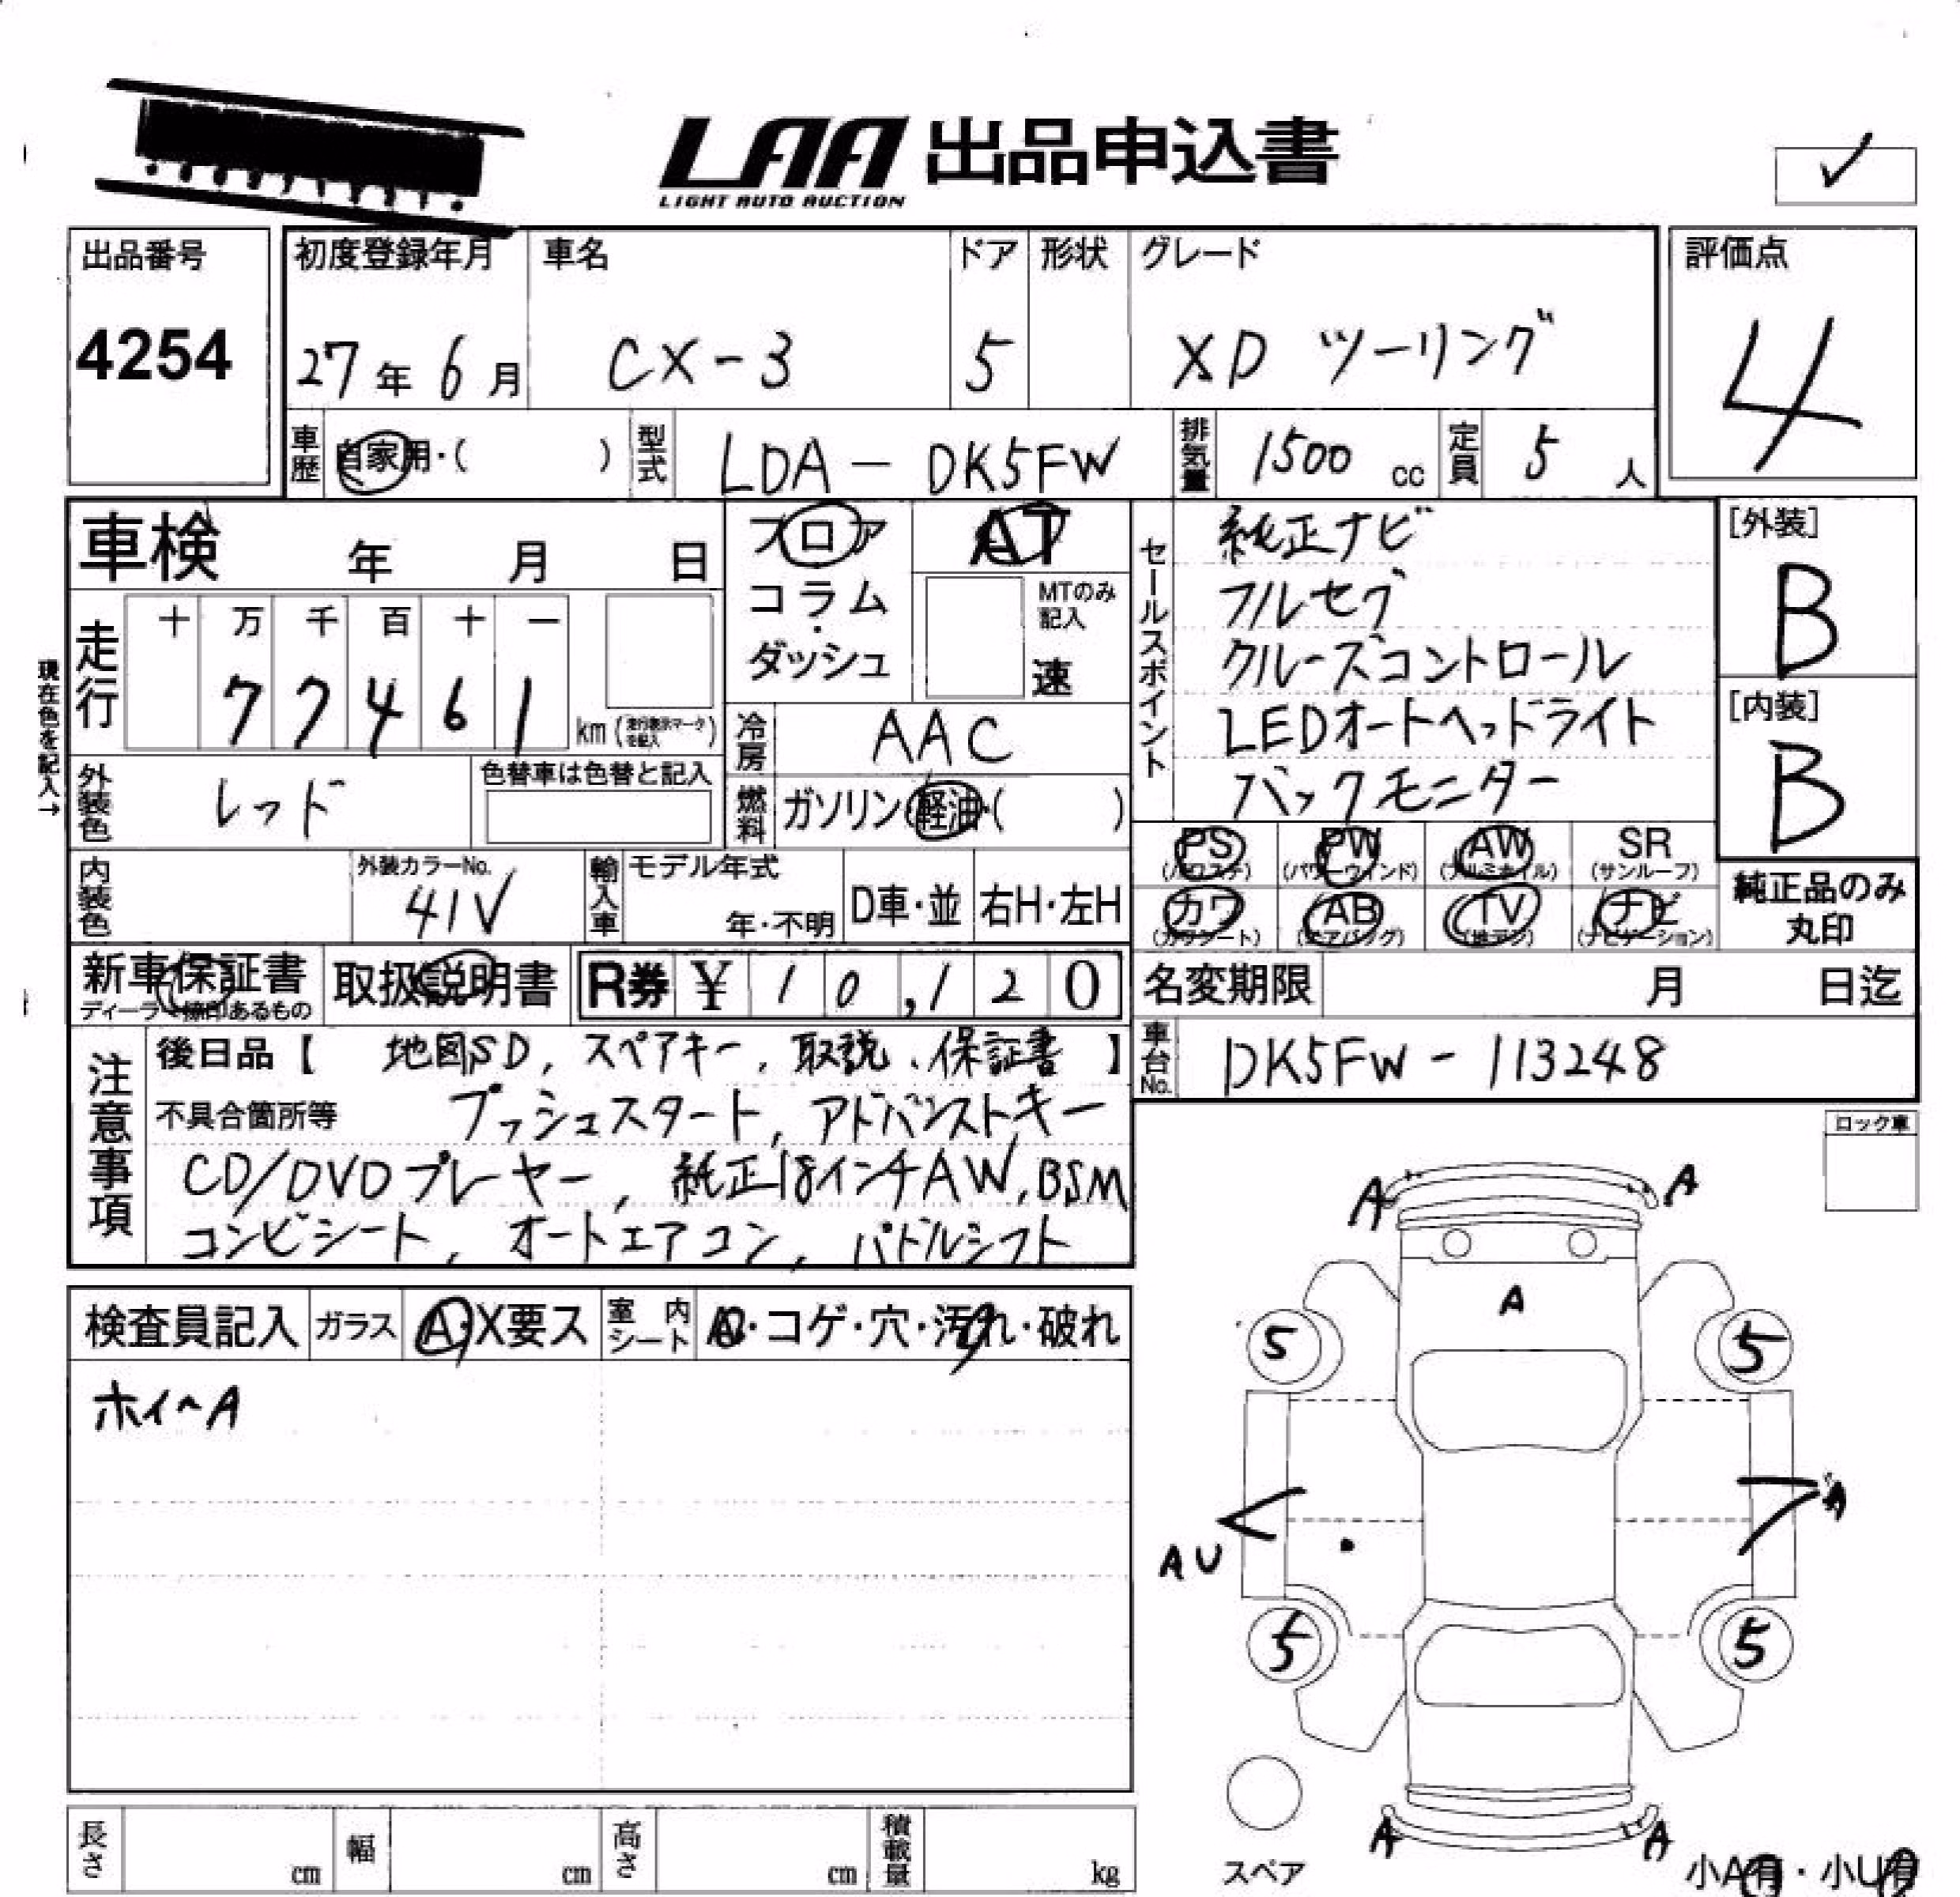 LAA 出品申込書
LIGHT AUTO AUCTION
✓
出品番号
4254
初度登録年月 車名 ドア 形状 グレード
27年 6月 CX-3 5 XD ツーリング
評価点
4
車歴 自家用・( ) 型式 LDA-DK5FW 排気量 1500 cc 定員 5 人
車検 年 月 日
フロア AT
コラム・ダッシュ MTのみ記入 速
走行 十 万 千 百 十 一
77461 km (走行表示マークを記入)
現在色を記入→
冷房 AAC
外装色 レッド 色替車は色替と記入
燃料 ガソリン・軽油・( )
セールスポイント
純正ナビ
フルセグ
クルーズコントロール
LEDオートヘッドライト
バックモニター
[外装]
B
[内装]
B
内装色 外装カラーNo. 41V 輸入車 モデル年式 年・不明 D車・並 右H・左H
PS PW AW SR
(パワステ) (パワーウィンド) (アルミホイル) (サンルーフ)
カワ AB TV ナビ
(カワシート) (エアバッグ) (地デジ) (ナビゲーション)
純正品のみ
丸印
新車保証書 取扱説明書 R券 ¥ 10,120
ディーラー捺印あるもの
名変期限 月 日迄
車台No. DK5FW-113248
注意事項
後日品【 地図SD, スペアキー, 取説, 保証書 】
不具合箇所等 プッシュスタート, アドバンストキー
CD/DVDプレーヤー, 純正18インチAW, BSM
コンビシート, オートエアコン, パドルシフト
ロック車
検査員記入 ガラス A・X要ス 室内シート ・コゲ・穴・汚れ・破れ
ホイールA
A A
A
5 5
A
AU
5 5
A A
スペア
小A有・小U有
長さ cm 幅 cm 高さ cm 積載量 kg